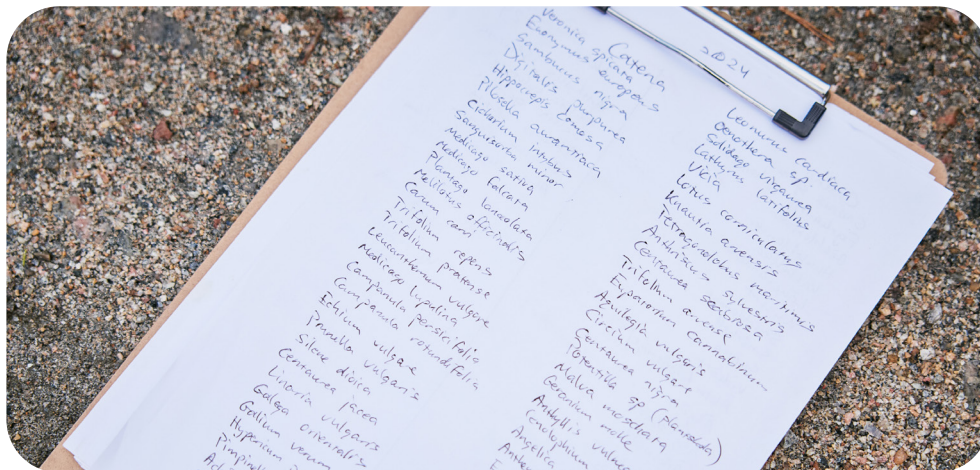 Catena
2024
Veronica spicata
Euonymus europeus
Sambucus nigra
Digitalis purpurea
Hippocrepis comosa
Pilosella aurantiaca
Cichorium intybus
Sanguisorba minor
Medicago sativa
Medicago falcata
Plantago lanceolata
Melilotus officinalis
Carum carvi
Trifolium repens
Trifolium pratense
Leucanthemum vulgare
Medicago lupulina
Campanula persicifolia
Campanula rotundifolia
Echium vulgare
Prunella vulgaris
Silene dioica
Centaurea jacea
Linaria vulgaris
Galega orientalis
Galium verum
Hypericum
Leonurus cardiaca
Oenothera sp.
Solidago virgaurea
Lathyrus latifolius
Vicia
Lotus corniculatus
Knautia arvensis
Tetragonolobus marinimus
Anthriscus sylvestris
Centaurea scabiosa
Trifolium arvense
Eupatorium cannabinum
Aquilegia vulgaris
Cirsium vulgare
Centaurea nigra
Potentilla sp
Malva moschata
Geranium molle
Anthyllis
Angelica